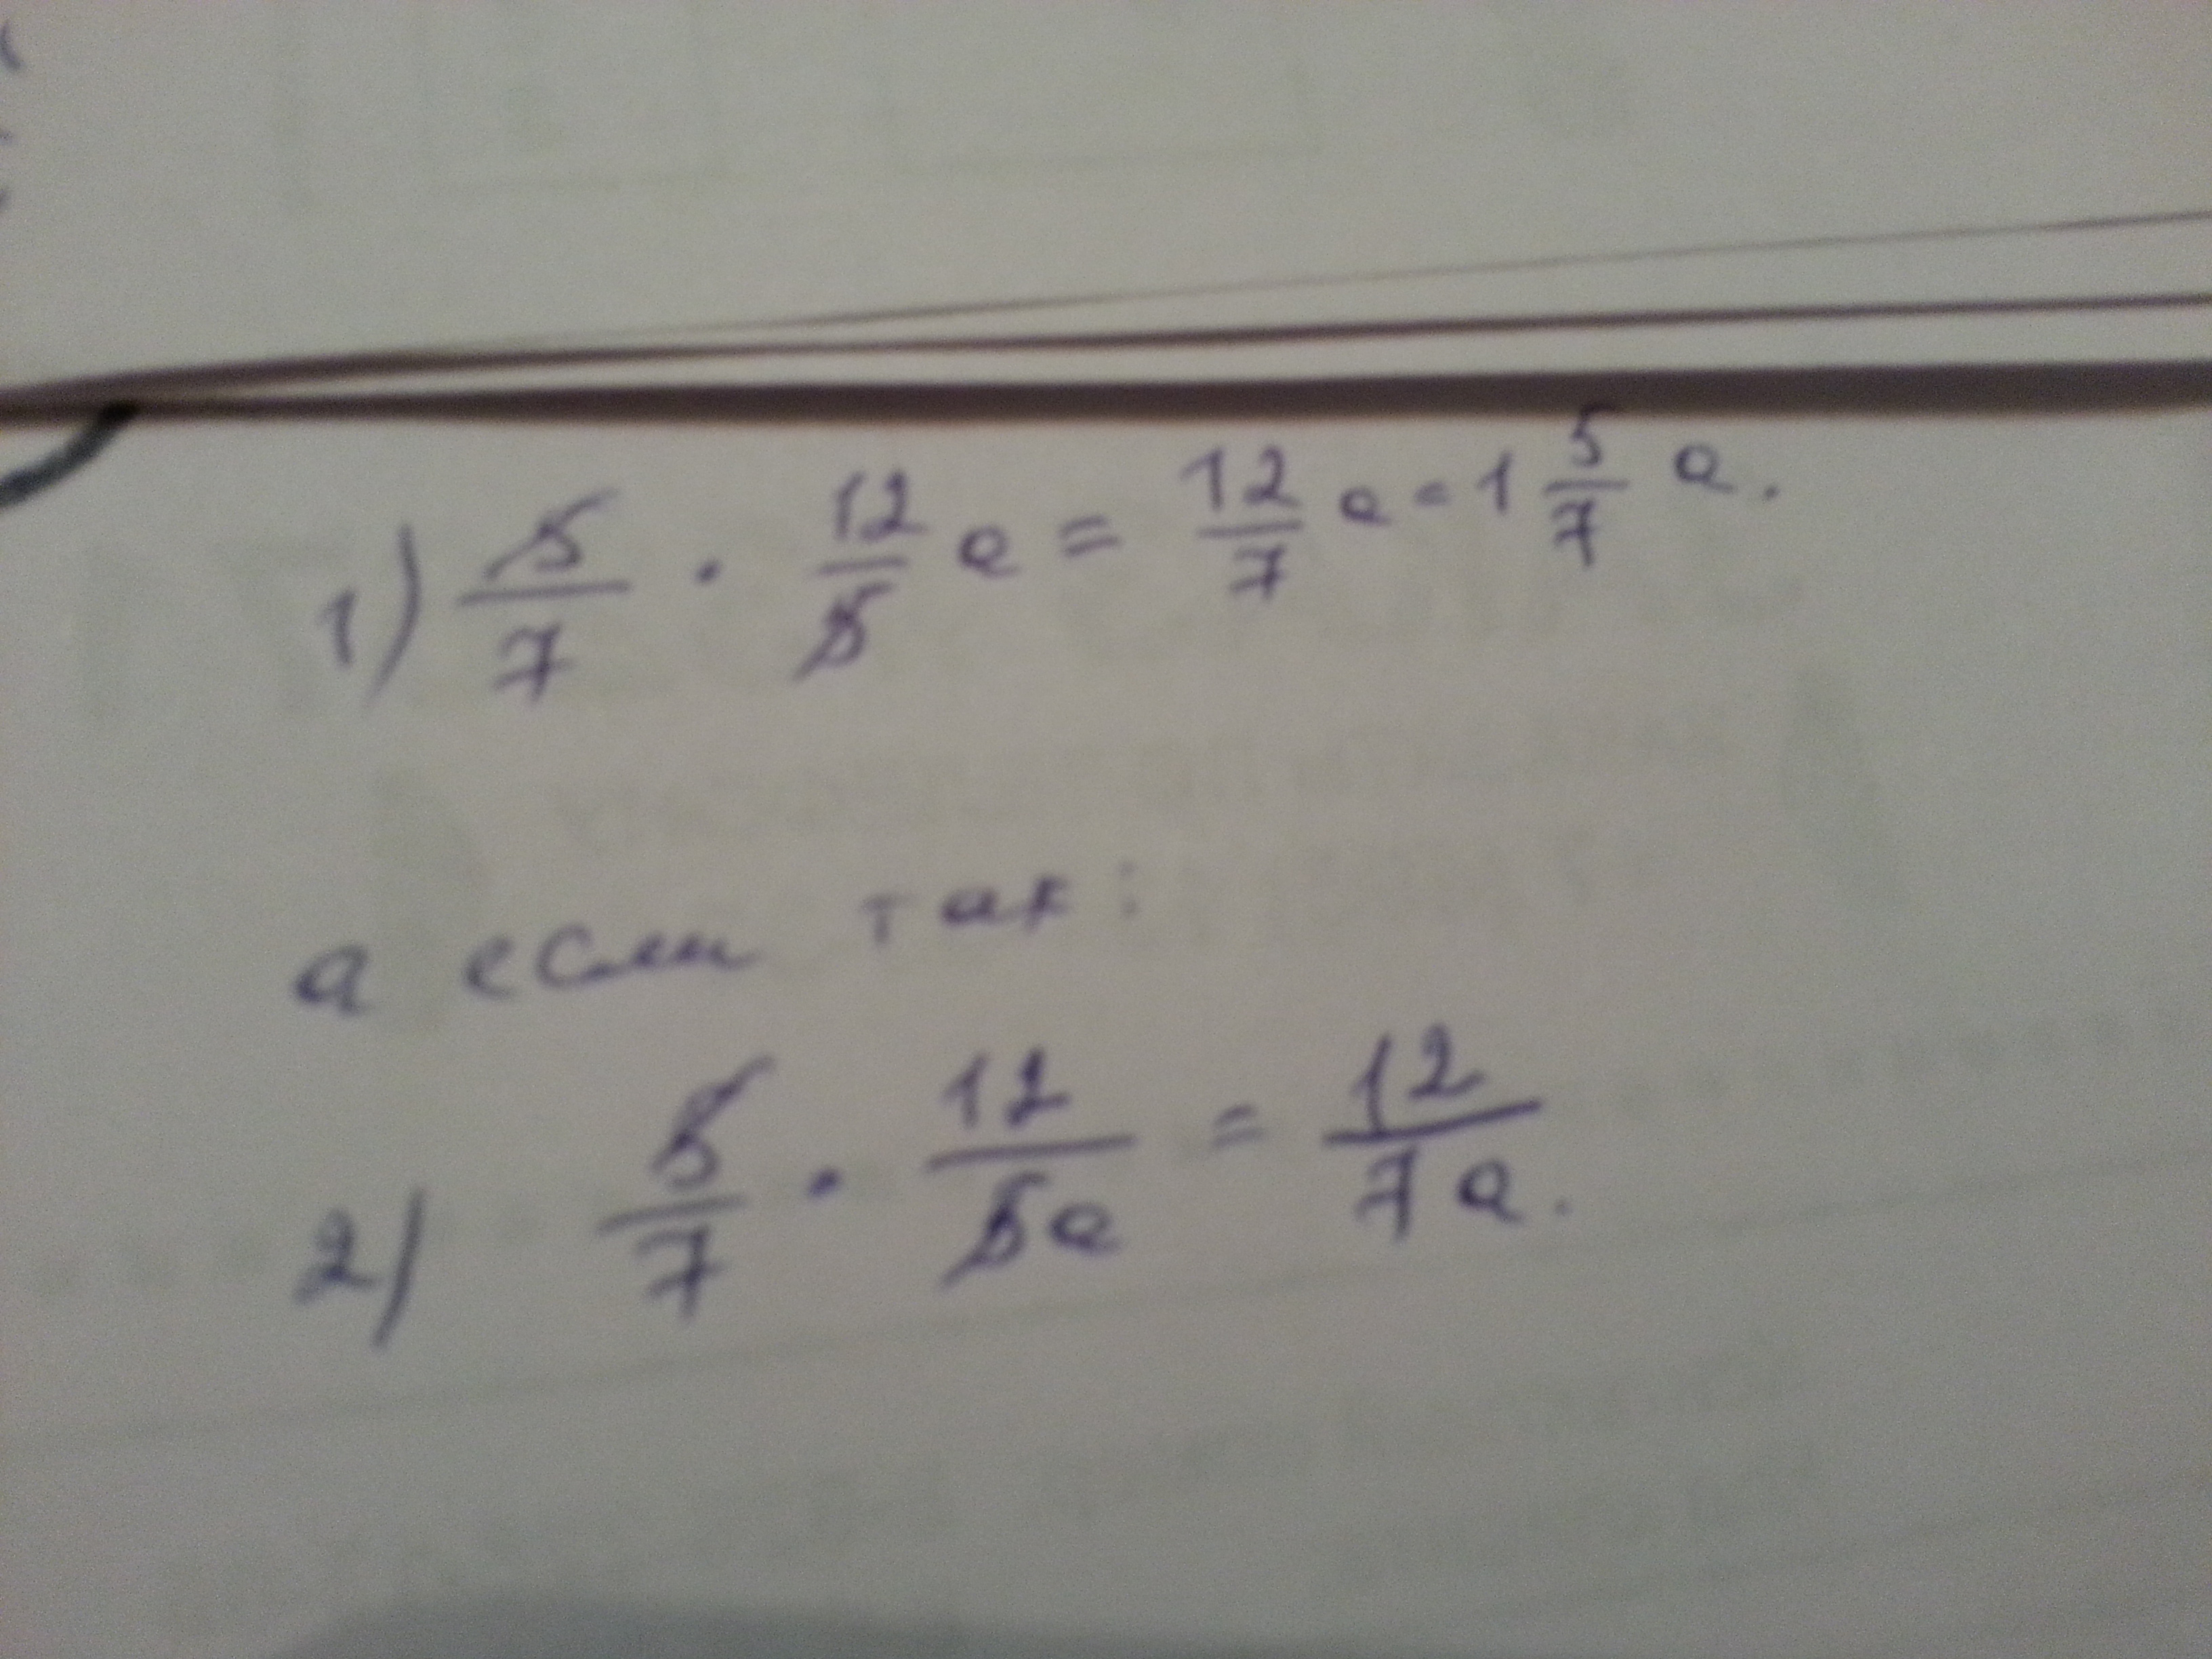 1) 5/7 · 12/5 a = 12/7 a = 1 5/7 a.
а если так:
2) 5/7 · 12/5a = 12/7a.